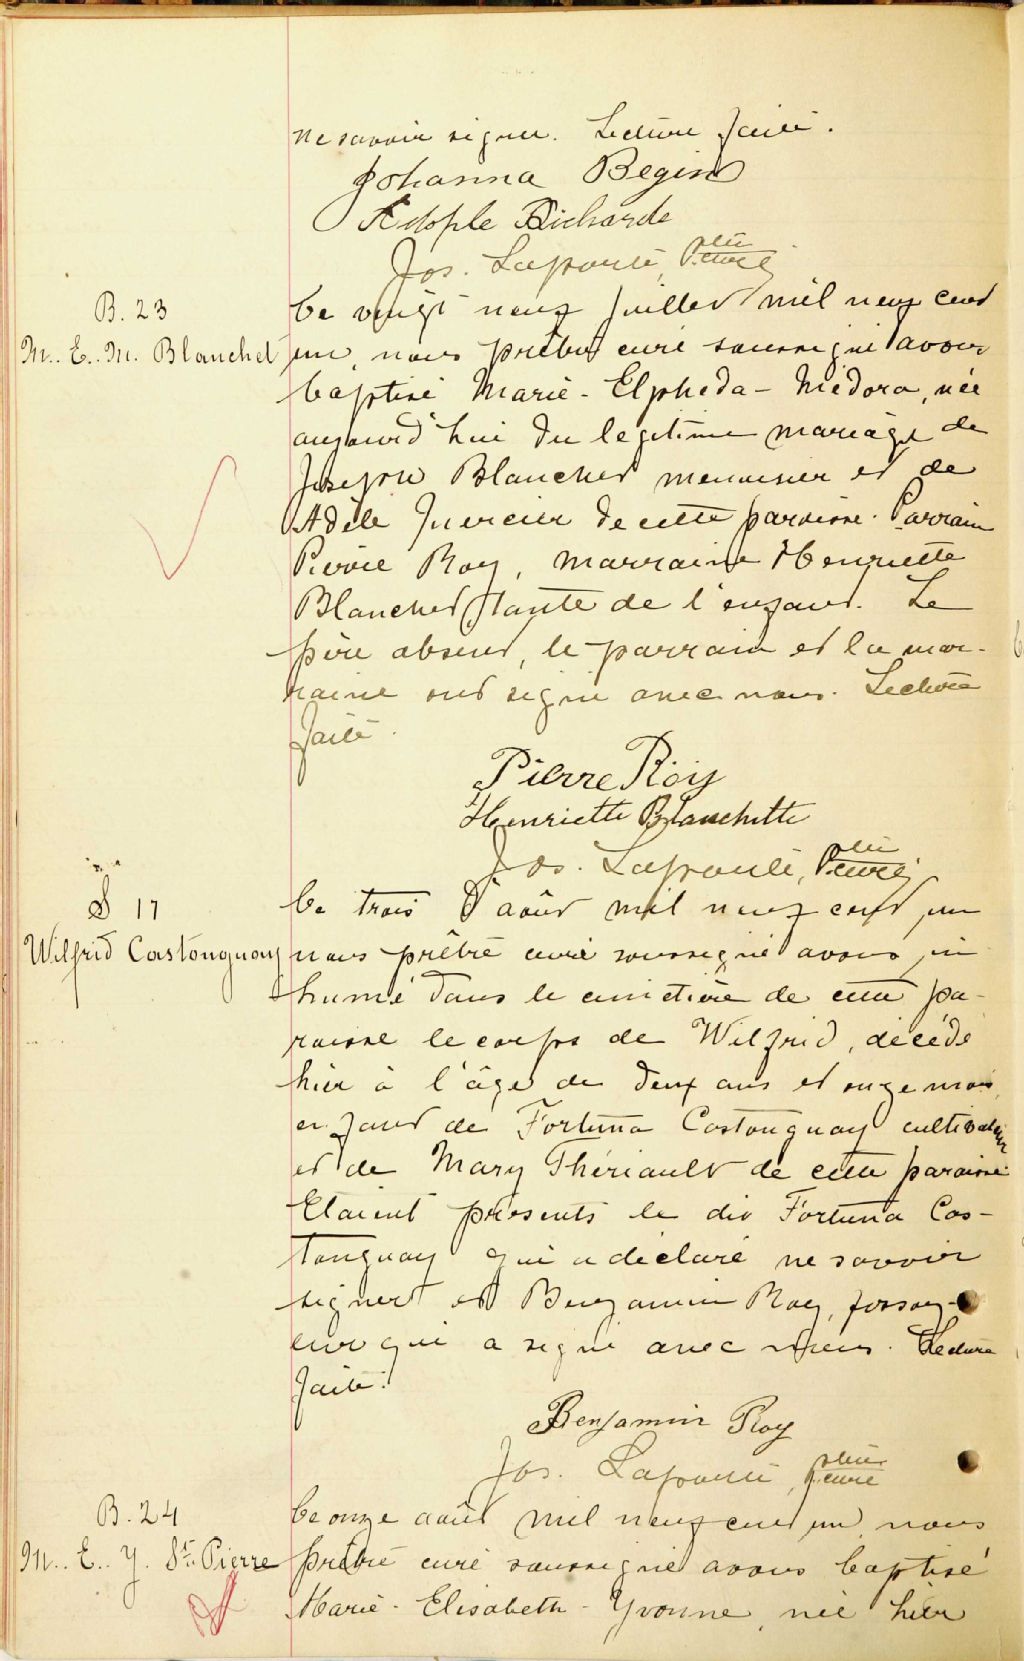 ne savoir signer. Lecture faite.
Johanna Begin
Adolphe Richarde
Jos. Lapointe, Ptre Curé
B. 23
M. E. M. Blanchet
Ce vingt neuf juillet mil neuf cent
un, nous prêtre curé soussigné avons
baptisé Marie-Elpheda-Médora, née
aujourd'hui du légitime mariage de
Joseph Blanchet menuisier et de
Adèle Mercier de cette paroisse. Parrain
Pierre Roy, marraine Henriette
Blanchet tante de l'enfant. Le
père absent, le parrain et la mar-
raine ont signé avec nous. Lecture
faite.
Pierre Roy
Henriette Blanchette
Jos. Lapointe, Ptre Curé
S 17
Wilfrid Castonguay
Ce trois d'août mil neuf cent un
nous prêtre curé soussigné avons in
humé dans le cimetière de cette pa-
roisse le corps de Wilfrid, décédé
hier à l'âge de deux ans et onze mois,
enfant de Fortuna Castonguay cultivateur
et de Mary Thériault de cette paroisse
Etaient présents le dit Fortuna Cas-
tonguay qui a déclaré ne savoir
signer et Benjamin Roy, fossoy-
eur qui a signé avec nous. Lecture
faite.
Benjamin Roy
Jos. Lapointe, Ptre curé
B. 24
M. E. Y. St. Pierre
Ce onze août mil neuf cent un, nous
prêtre curé soussigné avons baptisé
Marie-Elisabeth-Yvonne, née hier